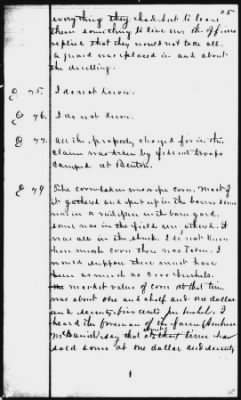 25
everything they had but to leave
them something to live on. the officers
replied that they would not take all.
a guard was placed in and about
the dwelling.
Q 75. I do not know.
Q 76. I do not know.
Q 77. All the property charged for in this
claim was taken by Federal troops
camped at Benton.
Q 79 The corn taken was ripe corn. Most of
it gathered and put up in the barn some
was in a rail pen in the barn yard.
some was in the field un gathered. it
was all in the shuck. I do not know
how much corn there was taken. I
would suppose there must have
been as much as 3000 bushels.
the market value of corn at that time
was about one and half and one dollar
and seventy five cents per bushel. I
heard the foreman of the farm
McDaniel say that at about that time he
sold some at one dollar and seventy